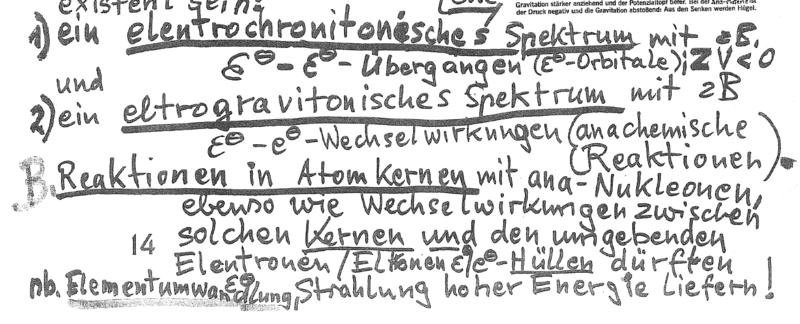 existent sein.
Gravitation stärker anziehend und der Potenzialtopf tiefer. Bei der Ana-Materie ist
der Druck negativ und die Gravitation abstoßend: Aus den Senken werden Hügel.
1) ein elentrochronitonisches Spektrum mit zB.
ε⊖-ε⊖-Übergangen (ε⊖-Orbitale); Z V<0
und
2) ein eltrogravitonisches Spektrum mit zB
ε⊖-e⊖-Wechselwirkungen (anachemische
Reaktionen).
B. Reaktionen in Atomkernen mit ana-Nukleonen,
ebenso wie Wechselwirkungen zwischen
solchen Kernen und den umgebenden
14
Elentronen/Eltronen ε⊖/e⊖-Hüllen dürften
nb. Elementumwandlung, Strahlung hoher Energie liefern!